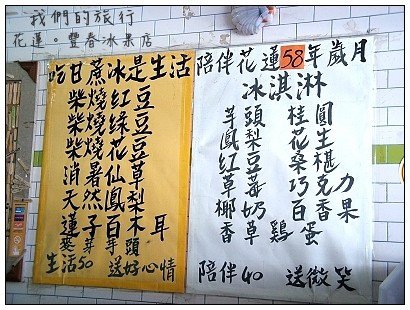 我們的旅行
花蓮。豐春冰菓店
吃甘蔗冰是生活
柴燒紅豆
柴燒綠豆
柴燒花豆
消暑仙草
天然鳳梨
蓮子百木耳
麥芽芋頭
生活50 送好心情
陪伴花蓮58年歲月
冰淇淋
芋頭 桂圓
鳳梨 花生
紅豆 桑椹
草莓 巧克力
椰奶 百香果
香草雞蛋
陪伴40 送微笑